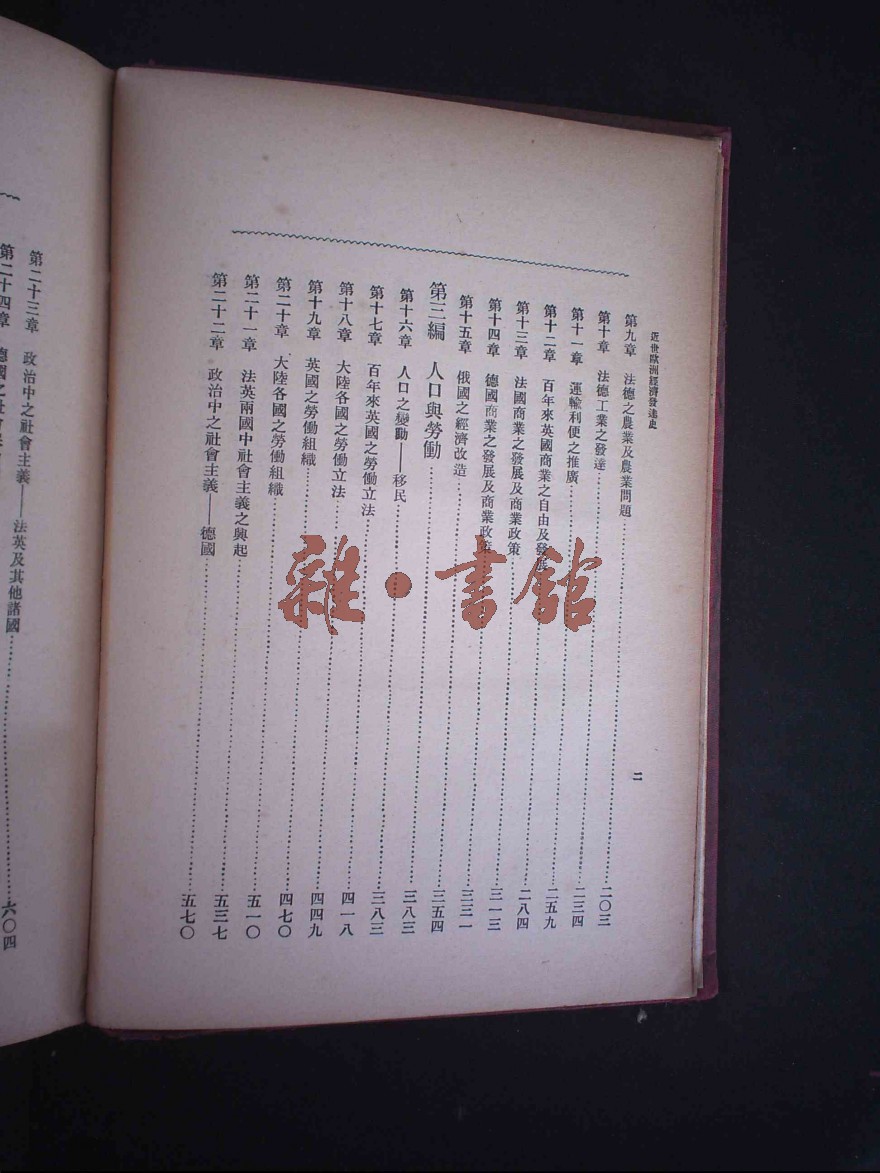 近世歐洲經濟發達史
二
第九章 法德之農業及農業問題……二〇三
第十章 法德工業之發達……二三四
第十一章 運輸利便之推廣……二五九
第十二章 百年來英國商業之自由及發展……二八四
第十三章 法國商業之發展及商業政策……三一三
第十四章 德國商業之發展及商業政策……三三一
第十五章 俄國之經濟改造……三五四
第三編 人口與勞働……三八三
第十六章 人口之變動——移民……三八三
第十七章 百年來英國之勞働立法……四一八
第十八章 大陸各國之勞働立法……四四九
第十九章 英國之勞働組織……四七〇
第二十章 大陸各國之勞働組織……五一〇
第二十一章 法英兩國中社會主義之興起……五三七
第二十二章 政治中之社會主義——德國……五七〇
第二十三章 政治中之社會主義——法英及其他諸國……六〇四
第二十四章 德國之社會
雜·書館